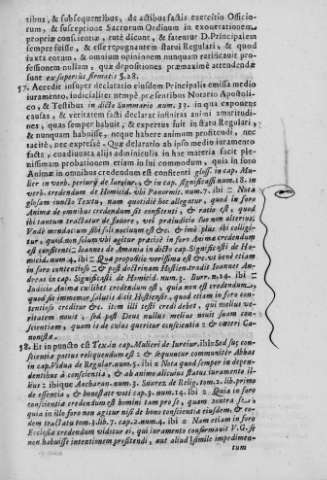 tibus, & subsequentibus, de actibus factis exercitio Officio-
rum, & susceptione Sacrorum Ordinum in exoneratione
propriæ conscientiæ, ritè dicunt, & fatentur D. Principalem
semper fuisse, & esse repugnantem statui Regulari, & quod
juxta eorum, & omnium opinionem nunquam ratificavit pro-
fessionem nullam, quæ depositiones præmaximè attendendæ
sunt ex superiùs firmatis §.28.
37. Accedit insuper declaratio ejusdem Principalis emissa medio
juramento, Judicialiter nempè præsentibus Notario Apostoli-
co, & Testibus in dicto Summario num. 33. in qua exponens
causas, & veritatem facti declarat infinitas animi amaritudi-
nes, quas semper habuit, & expertus fuit in statu Regulari,
& nunquam habuisse, neque habere animum profitendi, nec
tacitè, nec expressè. Quæ declaratio ab ipso medio juramento
facta, coadjuvata aliis adminiculis in hac materia facit ple-
nissimam probationem etiam in sui commodum, quia in foro
Animæ in omnibus credendum est conscienti gloss. in cap. Mu-
lier in verb. perierat de Jurejur., & in cap. significasti num.18. in
verb. credendum de Homicid. ubi Panormit. num.7. ibi = Nota
glosam juncto Textu, nam quotidiè hoc allegatur, quod in foro
Animæ de omnibus credendum sit confitenti, & ratio est, quod
ibi tantum tractatur de suo
Undè mendacium sibi soli nocivum est &c. & imò plus ibi colligi-
tur, quod non solum ubi agitur præcisè in foro Animæ credendum
est confitenti; Joannes de Amania in dicto cap. Significasti de Ho-
micid. num.4. ibi = Quæ propositio verissima est &c. ubi benè etiam
in foro contentioso = & post doctrinam Hostien. tradit Joannes An-
dreas in cap. Significasti de Homicid. num.5. Burr. num.6. ibi =
Judicio Animæ cuilibet credendum est, quia non est credendum,
quod sit immemor salutis dicit Hostiensis, quod etiam in foro con-
tentioso creditur &c. item illi testi credi debet, qui melius ve-
ritatem novit, sed post Deus nullus melius novit suam con-
scientiam, quam is de cujus quæritur conscientia = & cæteri Ca-
nonistæ.
38. Et in puncto est Tex. in cap. Mulieri de Jurejur. ibi = Sed suæ con-
scientiæ potius relinquendum est = & sequuntur communiter Abbas
in cap. Vidua de Regular. num.5. ibi = Nota quod semper in depen-
dentibus à conscientia, & ab animo alicujus statur juramento il-
lius = ibique Ancharan. num.3. Suarez de Relig. tom.2. lib. primo
de essentia, & honestate voti cap.3. num.14. ibi = Quia in foro
conscientiæ credendum est homini tam pro se, quam contra se,
quia in illo foro non agitur nisi de bono conscientiæ ejusdem, & eo-
dem tractatu tom.3. lib.7. num.4. ibi = Nam etiam in foro
Ecclesiæ credendum videtur ei, qui juramento confirmavit V.G. se
non habuisse intentionem profitendi, aut aliud simile impedimen-
tum